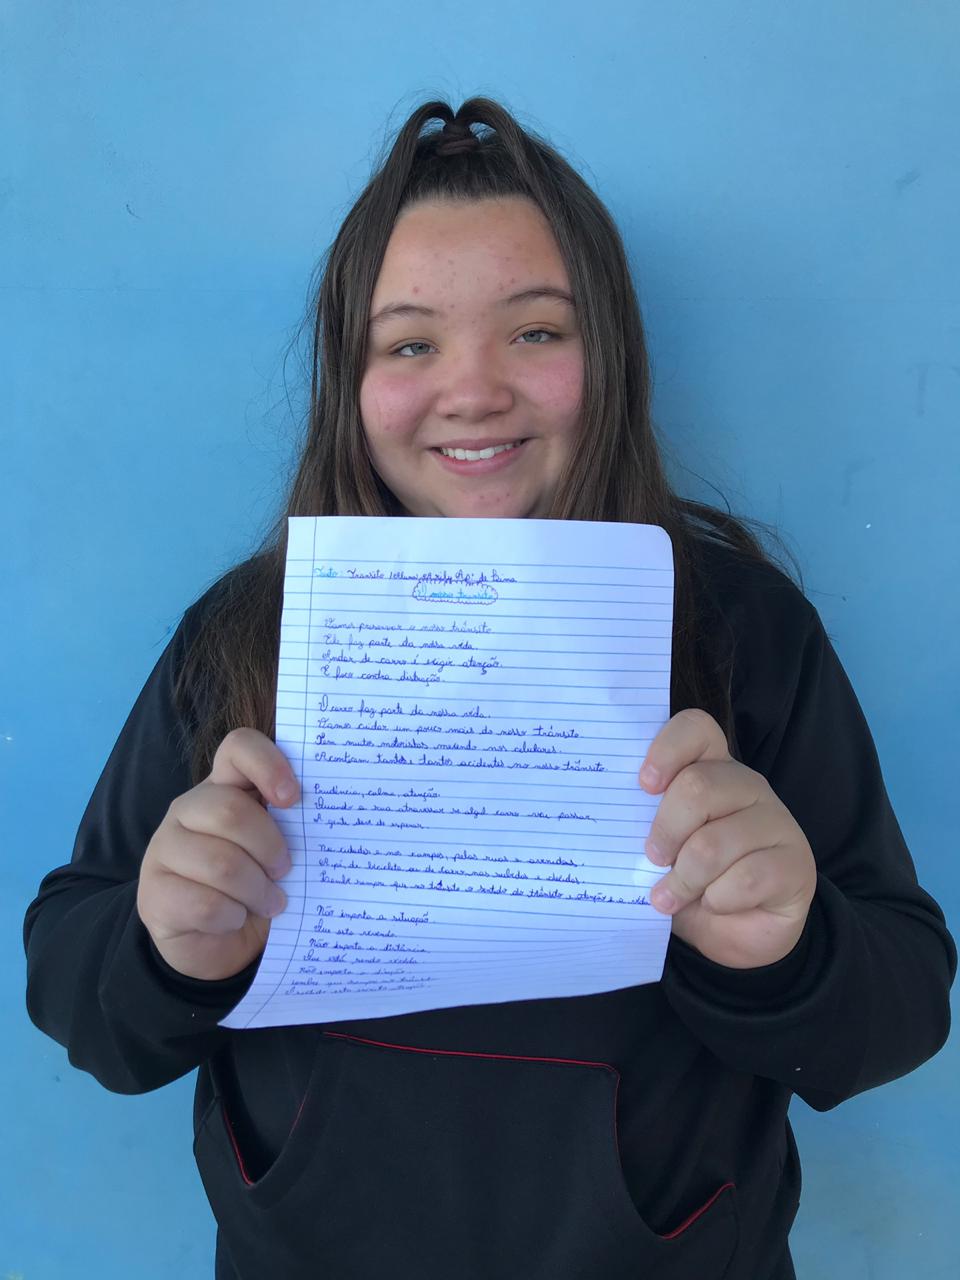 Texto: Trânsito
O nosso trânsito
Vamos preservar o nosso trânsito
Ele faz parte da nossa vida.
Andar de carro é exigir atenção.
E foco contra distração.
O carro faz parte da nossa vida.
Vamos cuidar um pouco mais do nosso trânsito.
Tem muitos motoristas mexendo nos celulares.
Acontecem tantos e tantos acidentes no nosso trânsito.
Prudência, calma, atenção.
Quando a rua atravessar se algul carro vou passar,
A gente deve de esperar.
Na cidades e nos campos, pelas ruas e avenidas,
A pé, de bicicleta ou de carro nas subidas e decidas.
Lembr sempre que no trânsito o sentido do trânsito e atenção é a vida
Não importa a situação.
Que esta
Não importa a distância
Que está sendo
Não importa a direção.